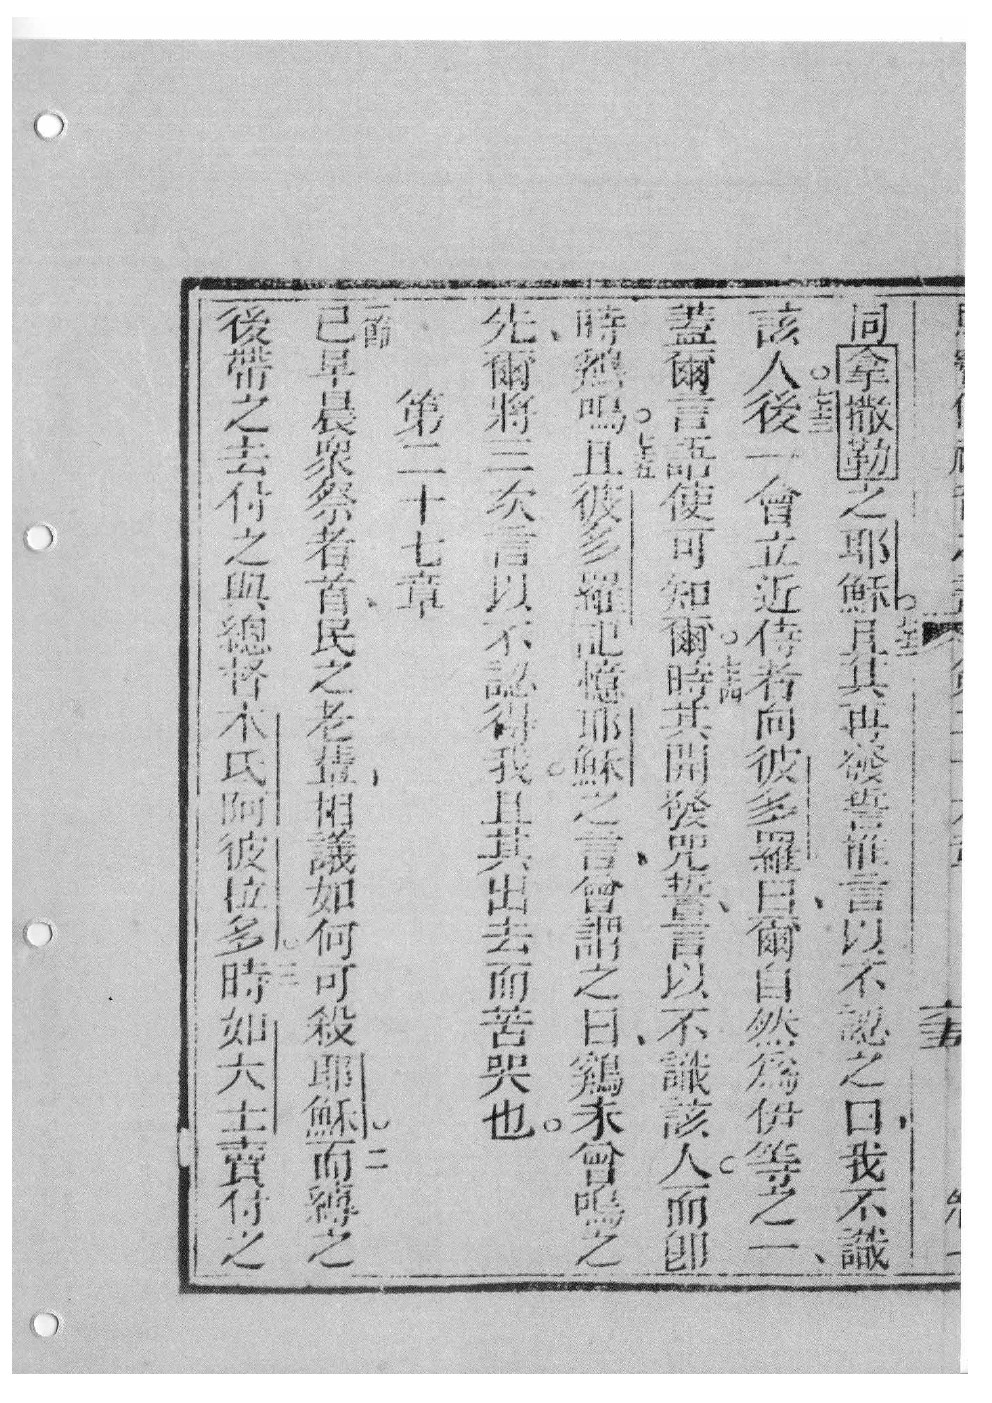 同拿撒勒之耶穌○七十二且其再發誓惟言以不認之曰我不識
該人○七十三後一會立近侍者向彼多羅曰爾自然為伊等之一
蓋爾言語使可知爾○七十四時其開發咒誓言以不識該人而即
時鷄鳴○七十五且彼多羅記憶耶穌之言曾謂之曰鷄未曾鳴之
先爾將三次言以不認得我且其出去而苦哭也
第二十七章
一節已早晨衆祭者首民之老輩相議如何可殺耶穌○二而縛之
後帶之去付之與總督本氏阿彼拉多○三時如大士賣付之